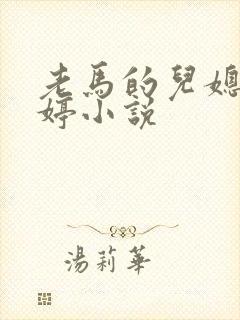 老馬的兒媳
婷小說
湯莉華